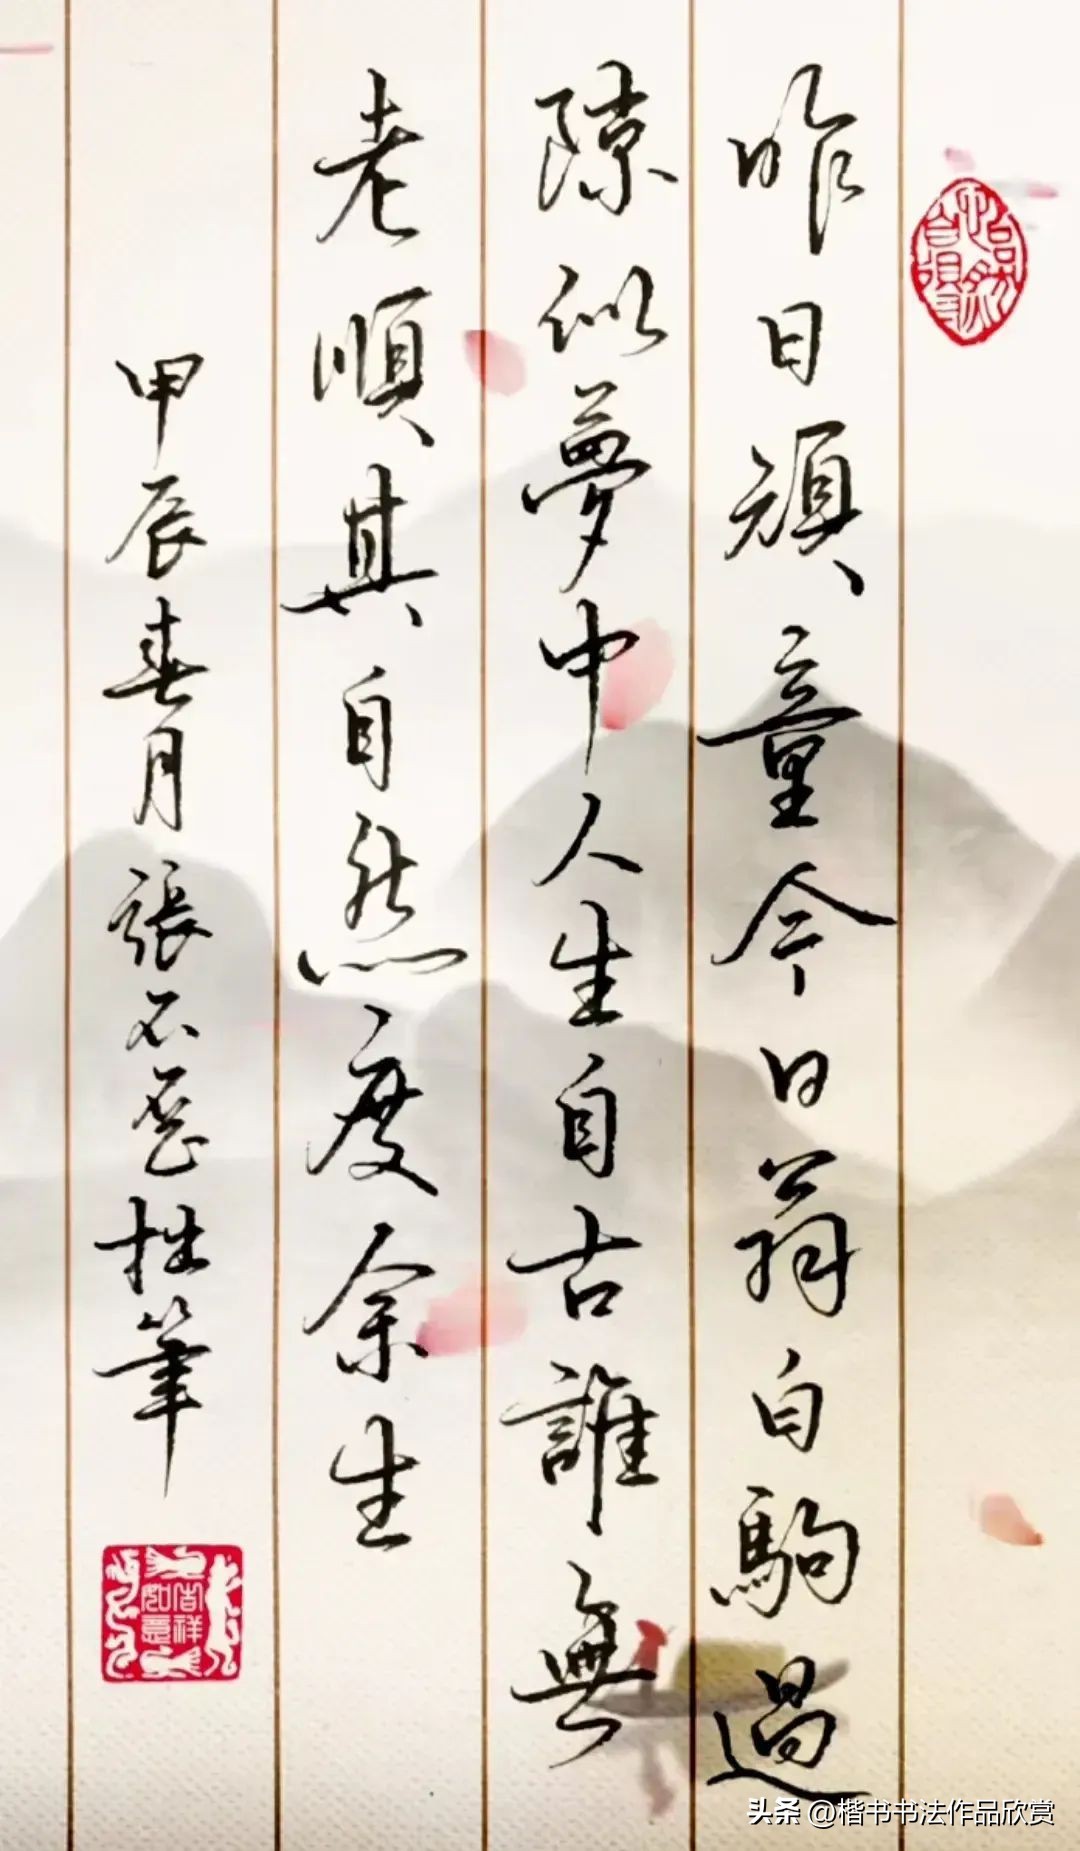 昨日頑童今日翁白駒過
隙似夢中人生自古誰無
老順其自然度余生
甲辰春月張不老拙筆
吉祥如意
头条 @楷书书法作品欣赏